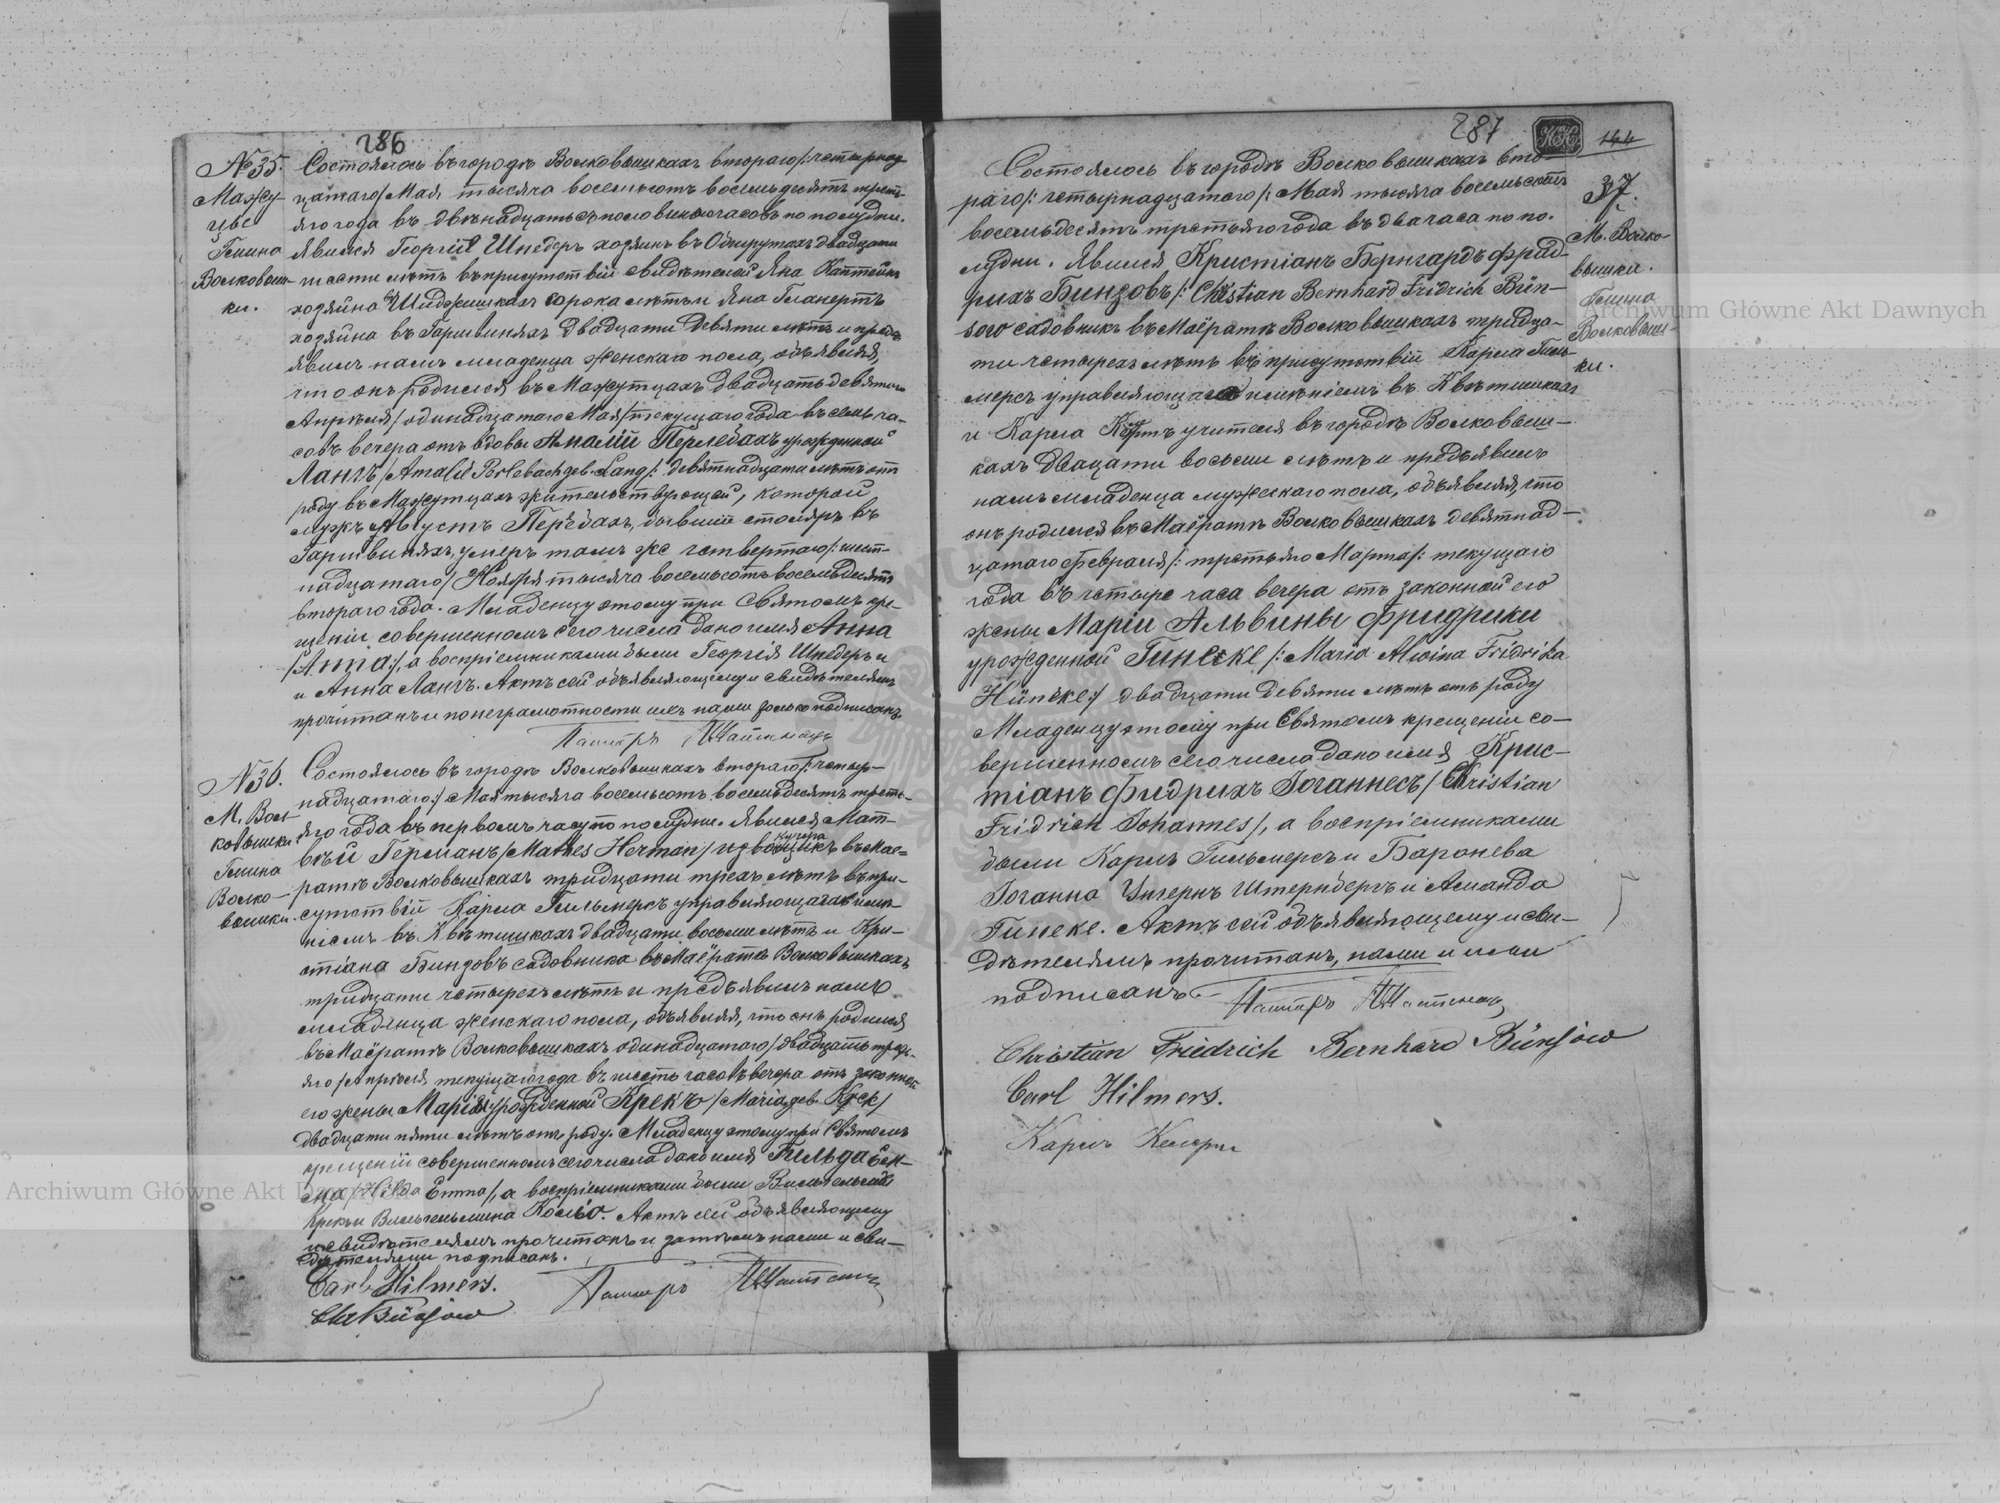 286
№ 35.
Мажу-
цье
Гмина
Волковыш-
ки.
Состоялось въ городѣ Волковышкахъ втораго /: четырнад-
цатаго / Мая, тысяча восемьсотъ восемьдесятъ треть-
яго года въ двѣнадцать съ половиною часовъ по полудни.
Явился Георгій Шнедеръ хозяинъ въ Обшрутахъ двадцати
шести лѣтъ въ присутствіи свидѣтелей Яна
хозяйна въ сорока лѣтъ и Яна Гланертъ
хозяйна въ Гаршвиняхъ двадцати девяти лѣтъ и предъ-
явилъ намъ младенца женскаго пола, объявляя,
что онъ родился въ Мажутцахъ двадцать девятаго
Апрѣля / одинадцатаго Мая / текущаго года въ семь ча-
совъ вечера отъ вдовы Амаліи Перлебахъ урожденной
Лангъ / Amalie Perlebach geb. Lang /: девятнадцати лѣтъ отъ
роду въ Мажутцахъ жительствующей, которой
мужъ Августъ Перебахъ, бывшій столяръ въ
Гаршвиняхъ, умеръ тамъ же четвертаго /: шест-
надцатаго / Ноября тысяча восемьсотъ восемьдесятъ
втораго года. Младенцу этому при Святомъ кре-
щеніи совершенномъ сего числа дано имя Анна
/ Anna :/, а воспріемниками были Георгій Шнедеръ и
и Анна Лангъ. Актъ сей объявляющему и свидѣтелямъ
прочитанъ и по неграмотности ихъ нами только подписанъ.
Пасторъ
№ 36.
М. Вол-
ковышки
Гмина
Волко-
вышки.
Состоялось въ городѣ Волковышкахъ втораго /: четыр-
надцатаго :/ Мая тысяча восемьсотъ восемьдесятъ треть-
яго года въ первомъ часу по полудни. Явился Мат-
вѣй Германъ / Mathes Herman / извощикъ въ Мае-
кучера
ратѣ Волковышкахъ тридцати трехъ лѣтъ въ при-
сутствіи Карла Гильмерсъ управляющаго имѣ-
ніемъ въ Квѣтишкахъ двадцати восьми лѣтъ и Кри-
стіана Бинзовъ садовника въ Маёратѣ Волковышкахъ
тридцати четырехъ лѣтъ и предъявилъ намъ
младенца женскаго пола, объявляя, что онъ родился
въ Маёратѣ Волковышкахъ одинадцатаго / двадцать треть-
яго / Апрѣля текущаго года въ шесть часовъ вечера отъ законной
его жены Маріи урожденной Крекъ / Maria geb. Krek /
двадцати пяти лѣтъ отъ роду. Младенцу этому при Святомъ
крещеніи совершенномъ сего числа дано имя Гильда Ем-
ма / Hilda Emma /, а воспріемниками были Вильгельмъ
Крекъ и Вильгельмина. Актъ сей объявляющему
и свидѣтелямъ прочитанъ и затѣмъ нами и сви-
дѣтелями подписанъ.
Carl Hilmers.
Пасторъ
Chr Bünsow
287
144
37.
М. Волко-
вышки.
Гмина
Волковыш-
ки.
Состоялось въ городѣ Волковышкахъ вто-
раго /: четырнадцатаго /: Мая тысяча восемьсотъ
восемьдесятъ третьяго года въ два часа по по-
лудни. Явился Кристіанъ Бернгардъ Фрид-
рихъ Бинзовъ /: Christian Bernhard Fridrich Bün-
sow садовникъ въ Маёратѣ Волковышкахъ тридца-
ти четырехъ лѣтъ въ присутствіи Карла Гиль-
мерсъ управляющаго имѣніемъ въ Квѣтишкахъ
и Карла учителя въ городѣ Волковыш-
кахъ двацати восьми лѣтъ и предъявилъ
намъ младенца мужескаго пола, объявляя, что
онъ родился въ Маёратѣ Волковышкахъ девятнад-
цатаго Февраля /: третьяго Марта /: текущаго
года въ четыре часа вечера отъ законной его
жены Маріи Альвины Фридрики
урожденной Гинеке /: Maria Alwina Fridrika
Hüneke :/ двадцати девяти лѣтъ отъ роду
Младенцу этому при Святомъ крещеніи со-
вершенномъ сего числа дано имя Крис-
тіанъ Фидрихъ Іоганнесъ / Christian
Fridrich Johannes /, а воспріемниками
были Карлъ Гильмерсъ и Баронева
Іоганна Унгернъ Штернбергъ и Аманда
Гинеке. Актъ сей объявляющему и сви-
дѣтелямъ прочитанъ, нами и ими
подписанъ.
Пасторъ
Christian Friedrich Bernhard Bünsow
Carl Hilmers.
Карлъ
Archiwum Główne Akt Dawnych
Archiwum Główne Akt Dawnych